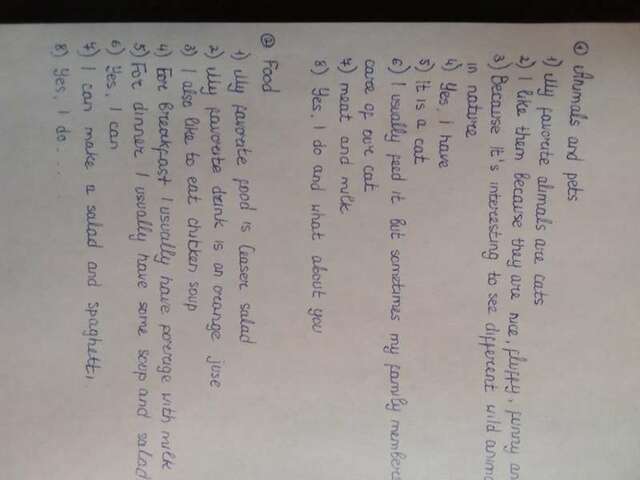 ① Animals and pets
1) My favorite alimals are cats
2) I like them Because they are nice, fluffy, funny an
3) Because it's interesting to see different wild anima
in nature
4) Yes, I have
5) it is a cat
6) I usually feed it But sometimes my family members
care of our cat
7) meat and milk
8) Yes, I do and what about you
② Food
1) My favorite food is Ceaser salad
2) My favorite drink is an orange juse
3) I also like to eat chitken soup
4) For Breakfast I usually have porrage with milk
5) For dinner I usually have some soup and salad
6) Yes, I can
7) I can make a salad and spaghetti.
8) Yes, I do....